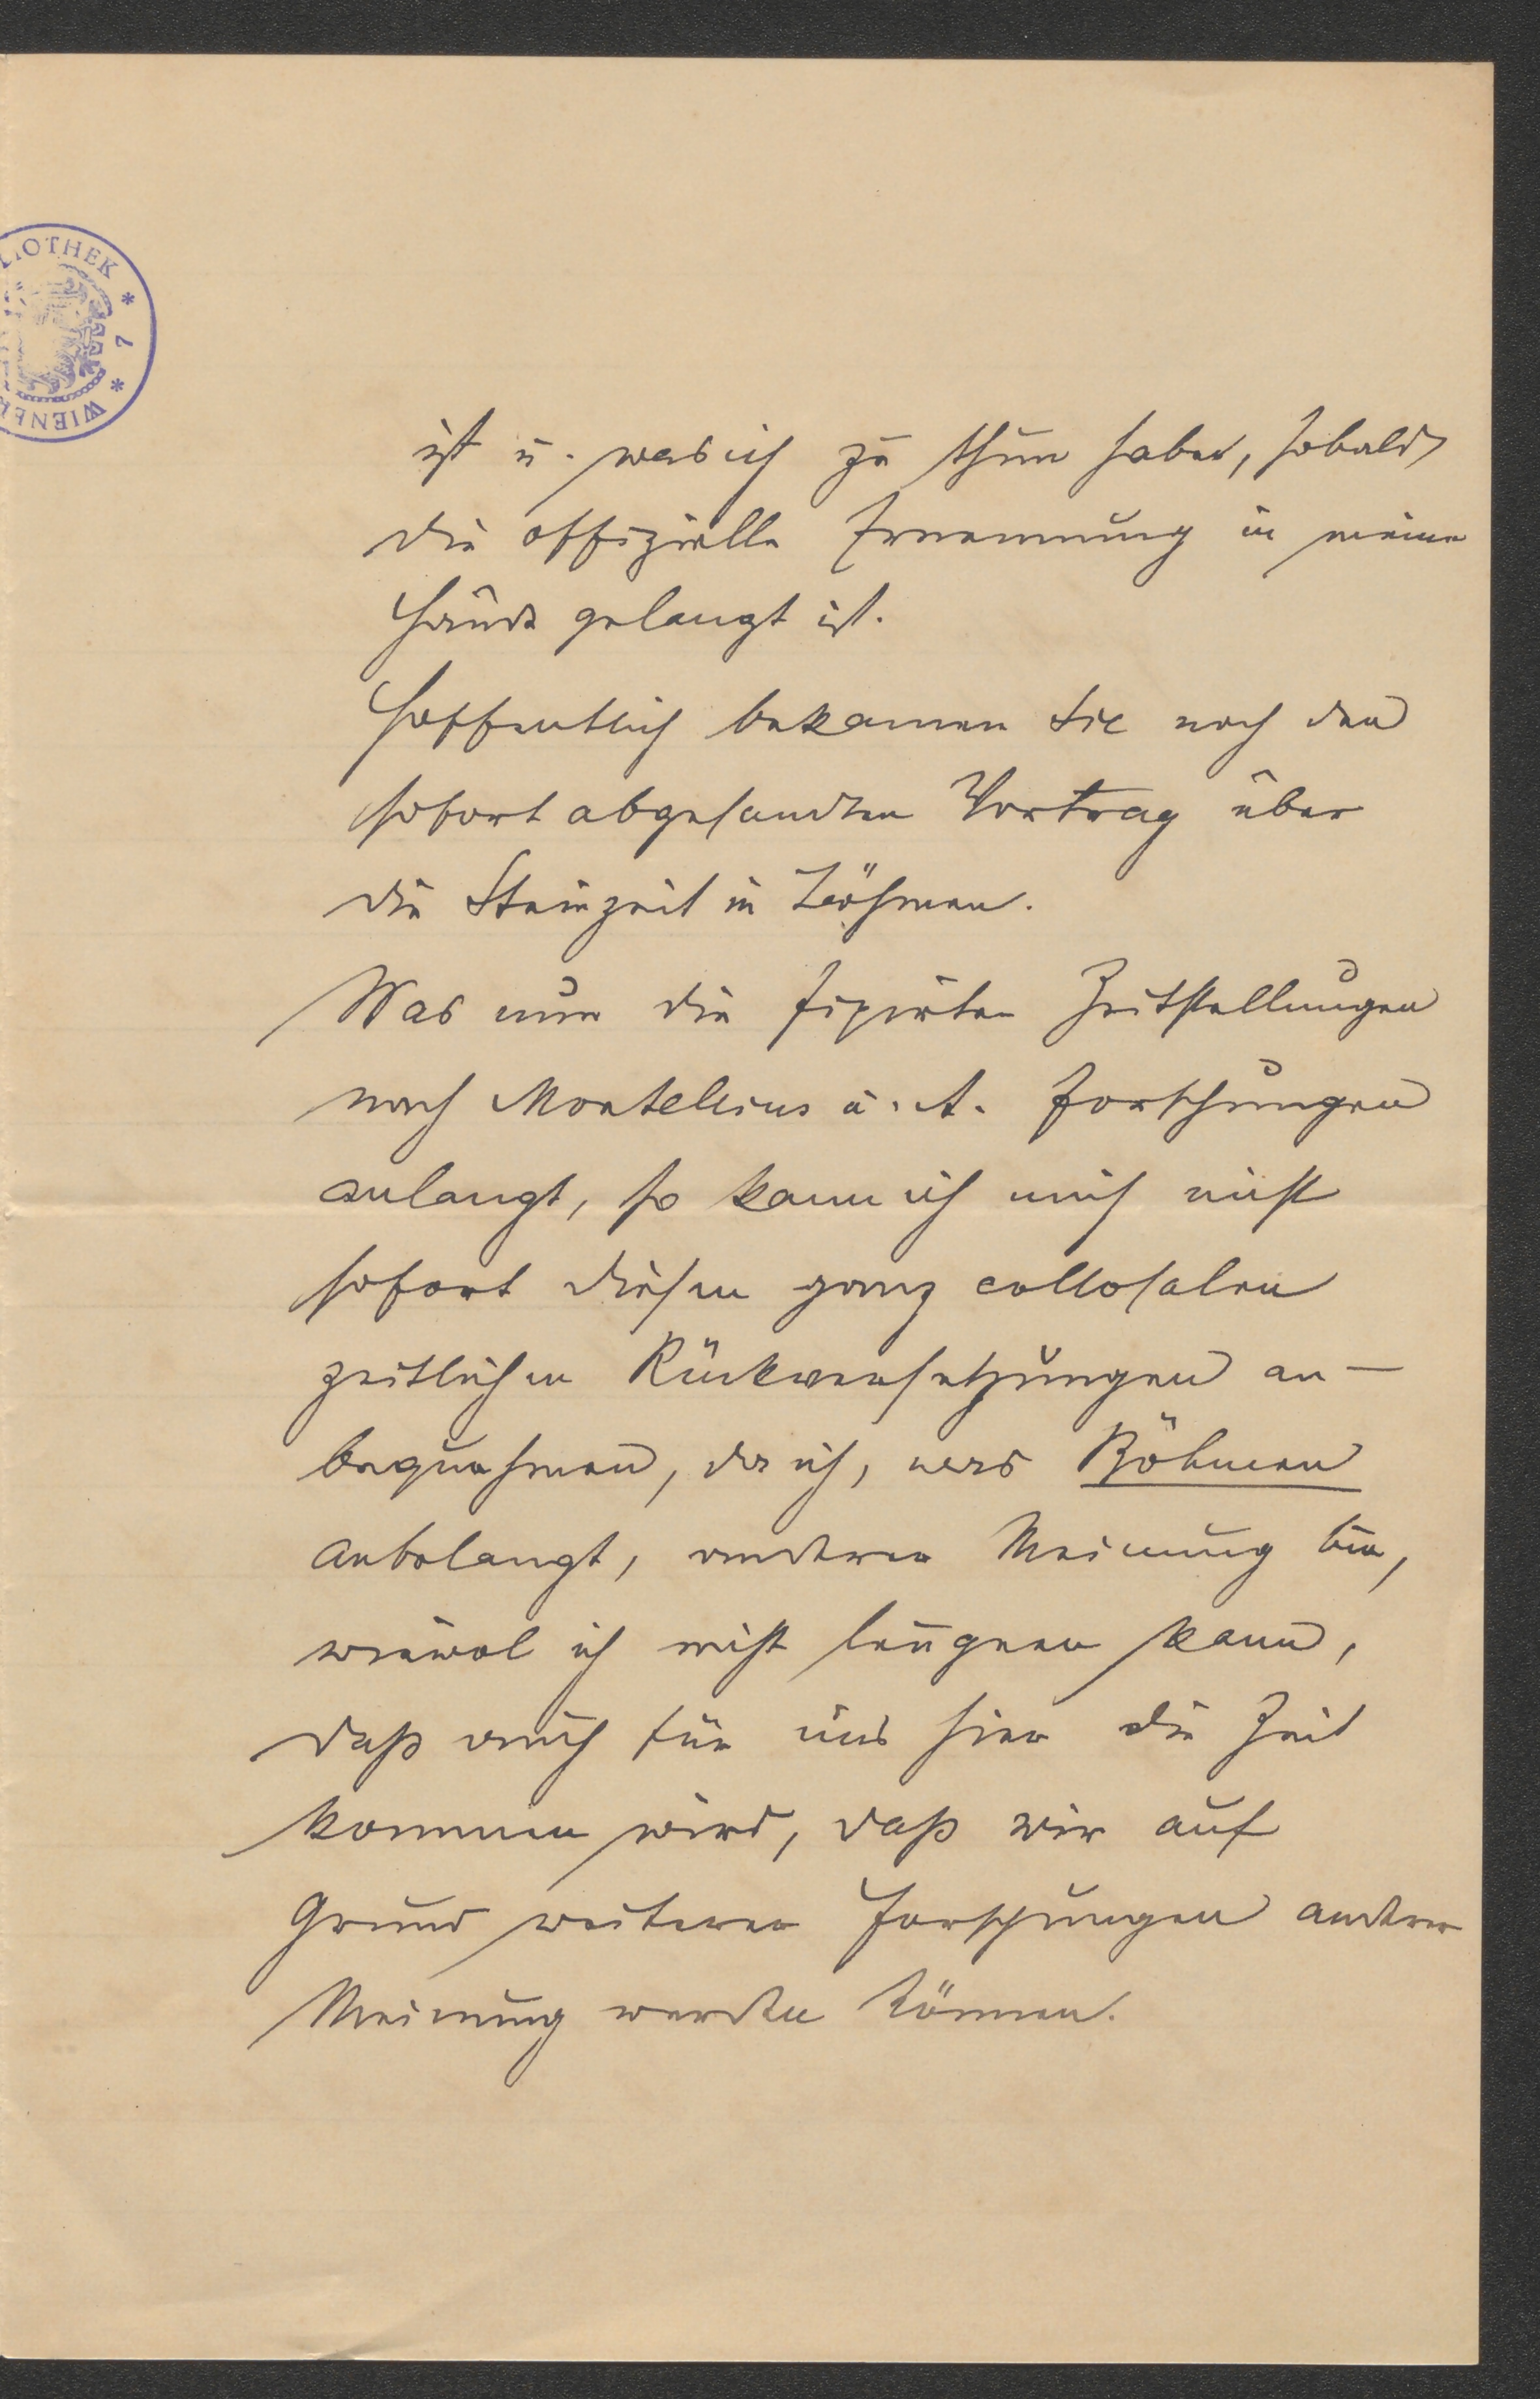 BIBLIOTHEK * 7 * WIENER
ist u. was ich zu thun habe, sobald
die offizielle Ernennung in meine
Hände gelangt ist.
Hoffentlich bekamen Sie noch den
sofort abgesandten Vortrag über
die Steinzeit in Böhmen.
Was nun die fixirten Zeitstellungen
nach Montelius u. A. Forschungen
anlangt, so kann ich mich nicht
sofort diesen ganz collosalen
zeitlichen Rückversetzungen an-
bequehmen, da ich, was Böhmen
anbelangt, anderer Meinung bin,
wiewol ich nicht leugnen kann,
daß auch für uns hier die Zeit
kommen wird, daß wir auf
Grund weiterer Forschungen anderer
Meinung werden können.